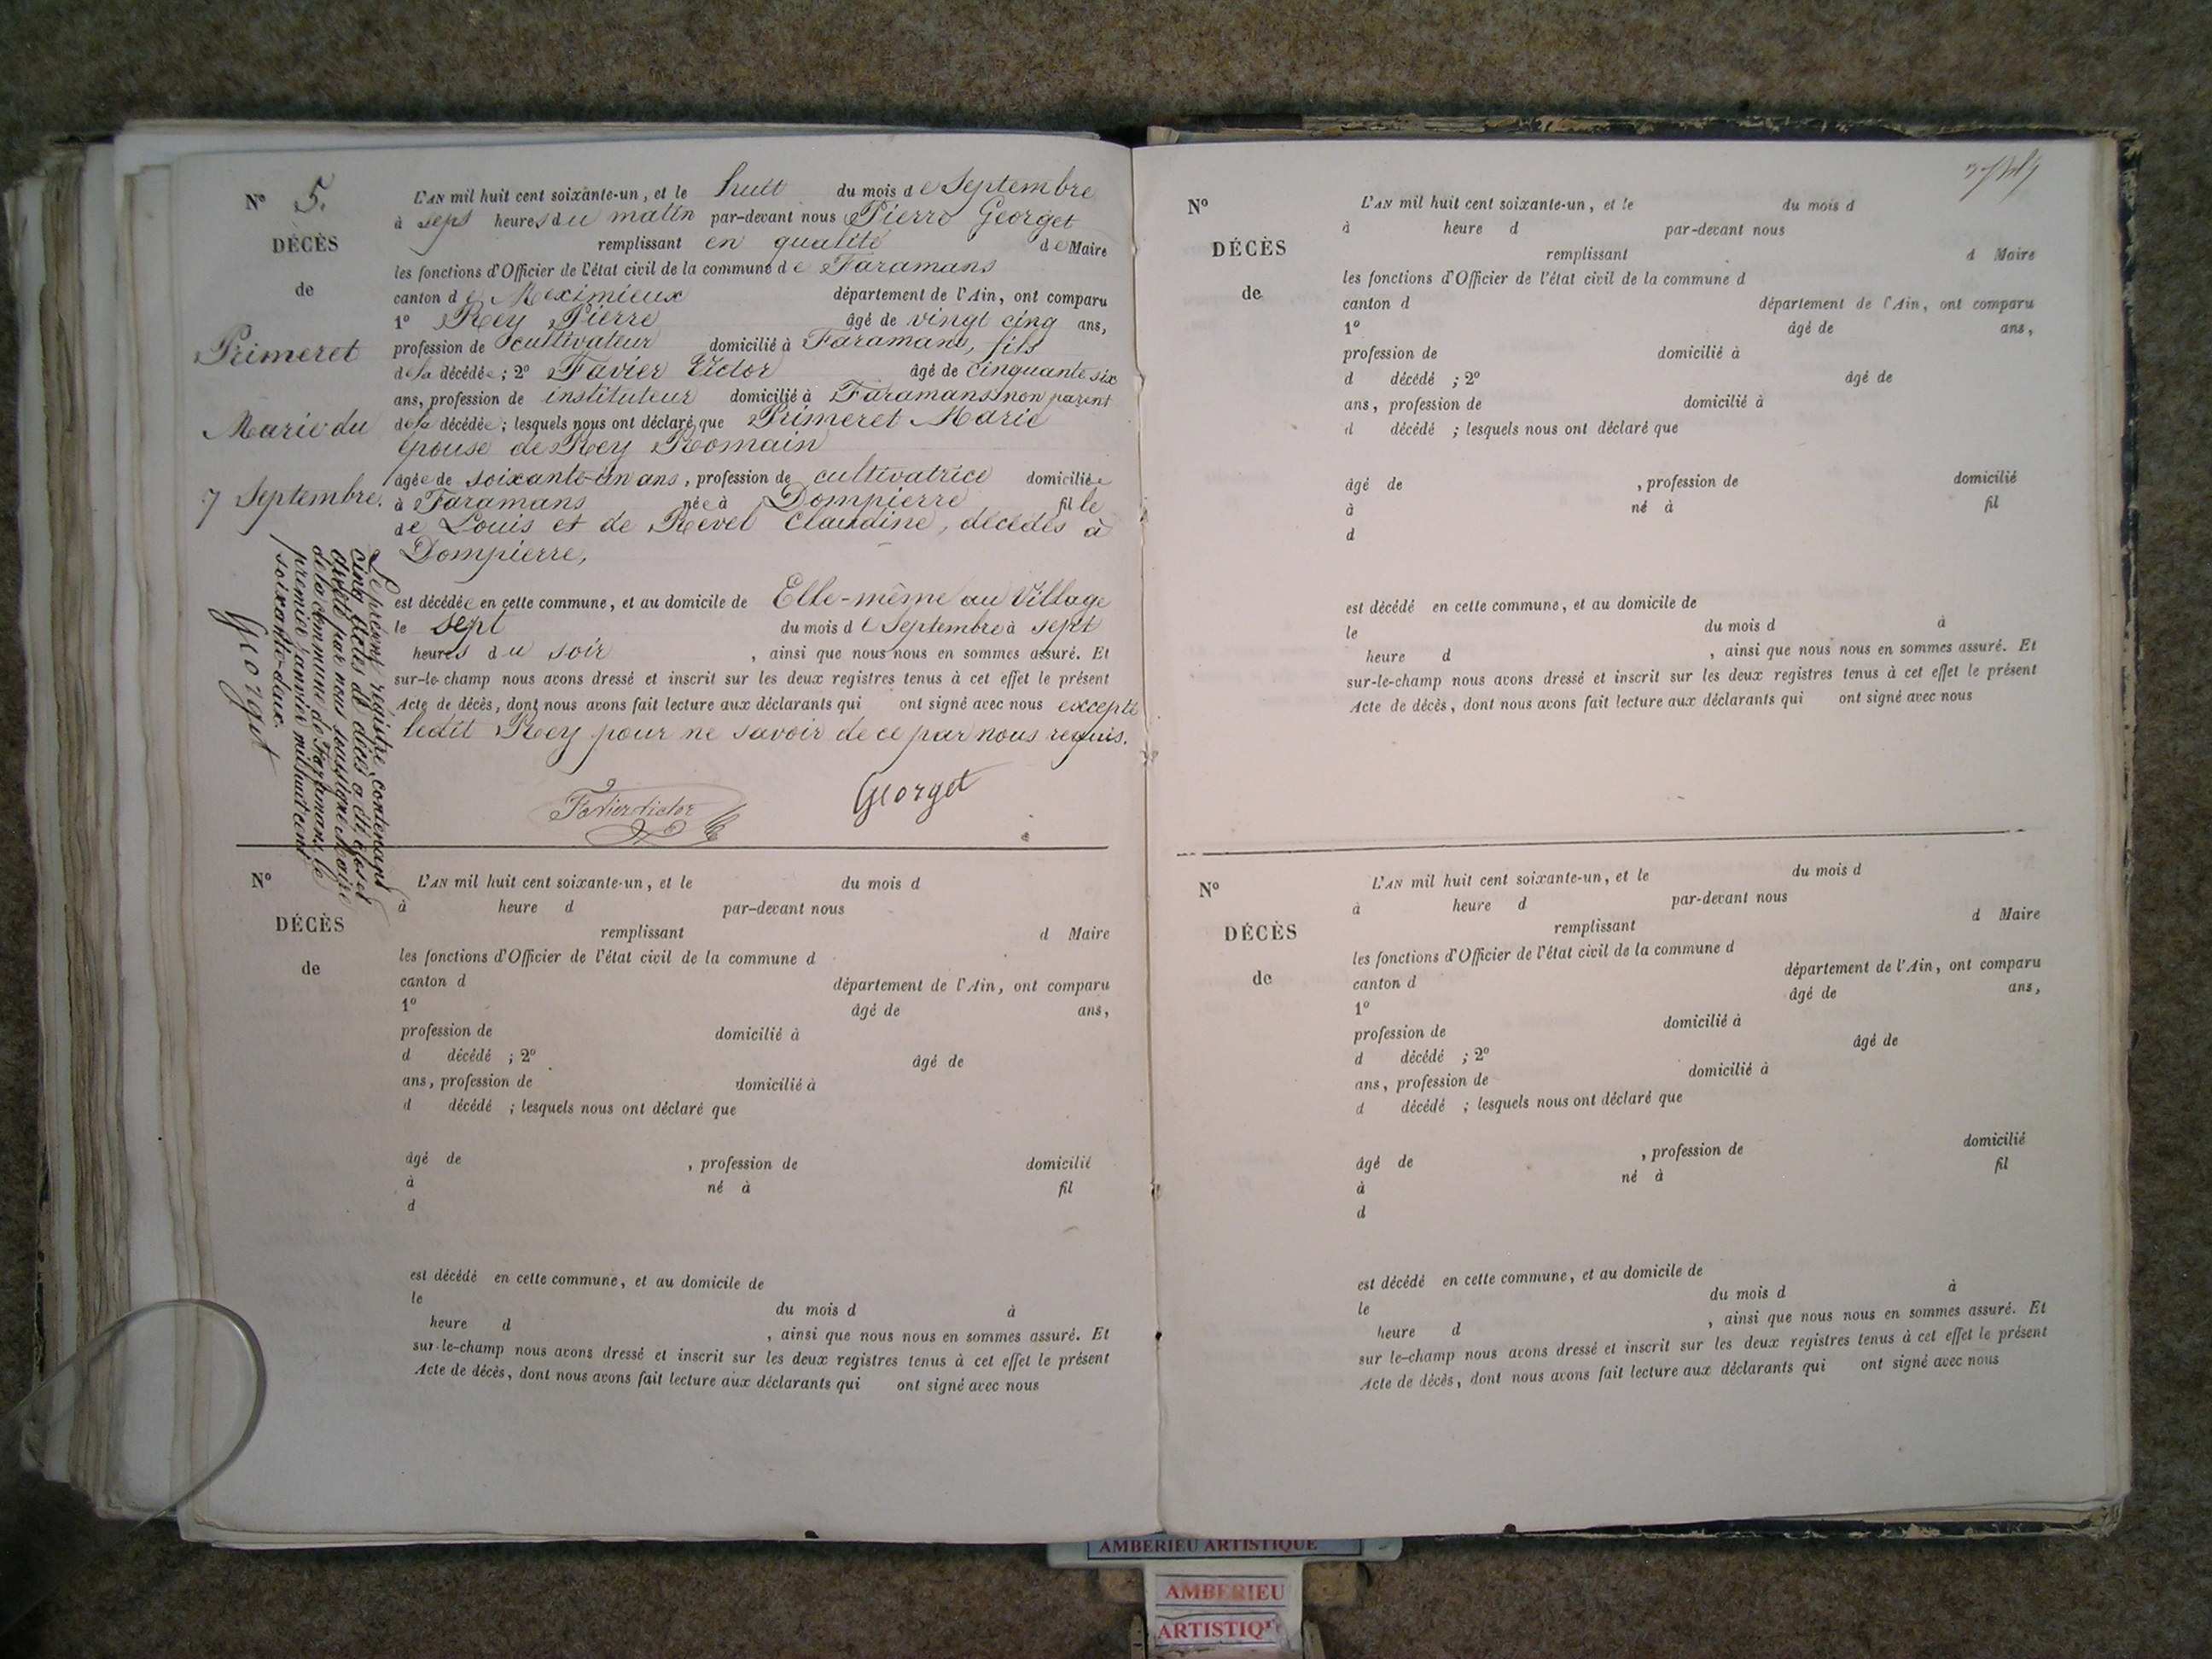 N° 5.
DÉCÈS
de
Primeret
Marie du
7 Septembre.
L'AN mil huit cent soixante-un, et le huit du mois de Septembre
à sept heures du matin par-devant nous Pierre Georget
remplissant en qualité de Maire
les fonctions d'Officier de l'état civil de la commune de Faramans
canton de Meximieux département de l'Ain, ont comparu
1° Rey Pierre âgé de vingt cinq ans,
profession de cultivateur domicilié à Faramans, fils
de la décédée ; 2° Favier Victor âgé de cinquante six
ans, profession de instituteur domicilié à Faramans non parent
de la décédée ; lesquels nous ont déclaré que Primeret Marie
épouse de Rey Romain
âgée de soixante-un ans, profession de cultivatrice domiciliée
à Faramans née à Dompierre fille
de Louis et de Revel Claudine, décédés à
Dompierre,
est décédée en cette commune, et au domicile de Elle-même au Village
le sept du mois de Septembre à sept
heures du soir , ainsi que nous nous en sommes assuré. Et
sur-le-champ nous avons dressé et inscrit sur les deux registres tenus à cet effet le présent
Acte de décès, dont nous avons fait lecture aux déclarants qui ont signé avec nous excepté
ledit Rey pour ne savoir de ce par nous requis.
Favier Victor
Georget
Le présent registre, contenant
cinq actes de décès a été clos et
arrêté par nous soussigné Maire
de la commune de Faramans, le
premier janvier mil huit cent
soixante-deux.
Georget
N°
DÉCÈS
de
L'AN mil huit cent soixante-un, et le du mois d
à heure d par-devant nous
remplissant d Maire
les fonctions d'Officier de l'état civil de la commune d
canton d département de l'Ain, ont comparu
1° âgé de ans,
profession de domicilié à
d décédé ; 2° âgé de
ans, profession de domicilié à
d décédé ; lesquels nous ont déclaré que
âgé de , profession de domicilié
à né à fil
d
est décédé en cette commune, et au domicile de
le du mois d à
heure d , ainsi que nous nous en sommes assuré. Et
sur-le-champ nous avons dressé et inscrit sur les deux registres tenus à cet effet le présent
Acte de décès, dont nous avons fait lecture aux déclarants qui ont signé avec nous
N°
DÉCÈS
de
L'AN mil huit cent soixante-un, et le du mois d
à heure d par-devant nous
remplissant d Maire
les fonctions d'Officier de l'état civil de la commune d
canton d département de l'Ain, ont comparu
1° âgé de ans,
profession de domicilié à
d décédé ; 2° âgé de
ans, profession de domicilié à
d décédé ; lesquels nous ont déclaré que
âgé de , profession de domicilié
à né à fil
d
est décédé en cette commune, et au domicile de
le du mois d à
heure d , ainsi que nous nous en sommes assuré. Et
sur-le-champ nous avons dressé et inscrit sur les deux registres tenus à cet effet le présent
Acte de décès, dont nous avons fait lecture aux déclarants qui ont signé avec nous
N°
DÉCÈS
de
L'AN mil huit cent soixante-un, et le du mois d
à heure d par-devant nous
remplissant d Maire
les fonctions d'Officier de l'état civil de la commune d
canton d département de l'Ain, ont comparu
1° âgé de ans,
profession de domicilié à
d décédé ; 2° âgé de
ans, profession de domicilié à
d décédé ; lesquels nous ont déclaré que
âgé de , profession de domicilié
à né à fil
d
est décédé en cette commune, et au domicile de
le du mois d à
heure d , ainsi que nous nous en sommes assuré. Et
sur le-champ nous avons dressé et inscrit sur les deux registres tenus à cet effet le présent
Acte de décès, dont nous avons fait lecture aux déclarants qui ont signé avec nous
AMBERIEU ARTISTIQUE
AMBERIEU
ARTISTIQU